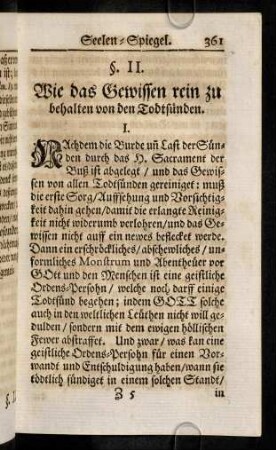 Seelen-Spiegel. 361
§. II.
Wie das Gewissen rein zu
behalten von den Todtsünden.
I.
NAchdem die Burde uñ Last der Sün-
den durch das H. Sacrament der
Buß ist abgelegt / und das Gewis-
sen von allen Todtsünden gereiniget; muß
die erste Sorg/Auffsehung und Vorsichtig-
keit dahin gehen/damit die erlangte Reinig-
keit nicht widerumb verlohren/und das Ge-
wissen nicht auff ein newes beflecket werde.
Dann ein erschröckliches/abschewliches/un-
formliches Monstrum und Abentheüer vor
GOtt und den Menschen ist eine geistliche
Ordens-Persohn / welche noch darff einige
Todtsünd begehen; indem GOTT solche
auch in den weltlichen Leüthen nicht will ge-
dulden / sondern mit dem ewigen höllischen
Fewer abstraffet. Und zwar / was kan eine
geistliche Ordens-Persohn für einen Vor-
wandt und Entschuldigung haben/wann sie
tödtlich sündiget in einem solchen Standt/
Z 5 in